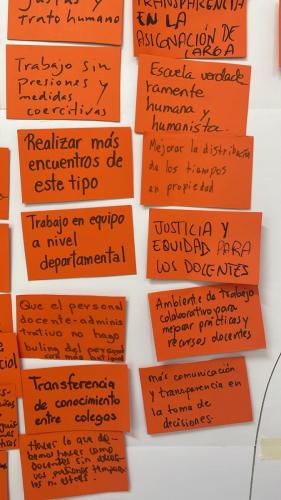 Justas y
trato humano
Trabajo sin
Presiones y
medidas
coercitivas
Realizar más
encuentros de
este tipo
Trabajo en equipo
a nivel
departamental
Que el personal
docente-adminis
trativo no haga
buling del personal
con más
Transferencia
de conocimiento
entre colegas
Hacer lo que de-
bemos hacer como
docentes sin
ni estrés.
TRANSPARENCIA
EN LA
ASIGNACIÓN DE
CARGA
Escuela verdade
ramente
humana y
humanista.
Mejorar la distribución
de los tiempos
en propiedad
JUSTICIA Y
EQUIDAD PARA
LOS DOCENTES
Ambiente de trabajo
colaborativo para
mejorar prácticas y
recursos docentes
más comunicación
y transparencia en
la toma de
decisiones.